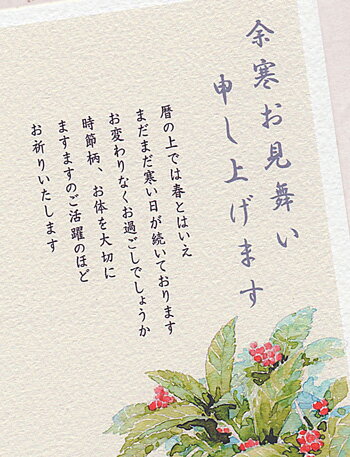 余寒お見舞い
申し上げます
暦の上では春とはいえ
まだまだ寒い日が続いております
お変わりなくお過ごしでしょうか
時節柄、お体を大切に
ますますのご活躍のほど
お祈りいたします